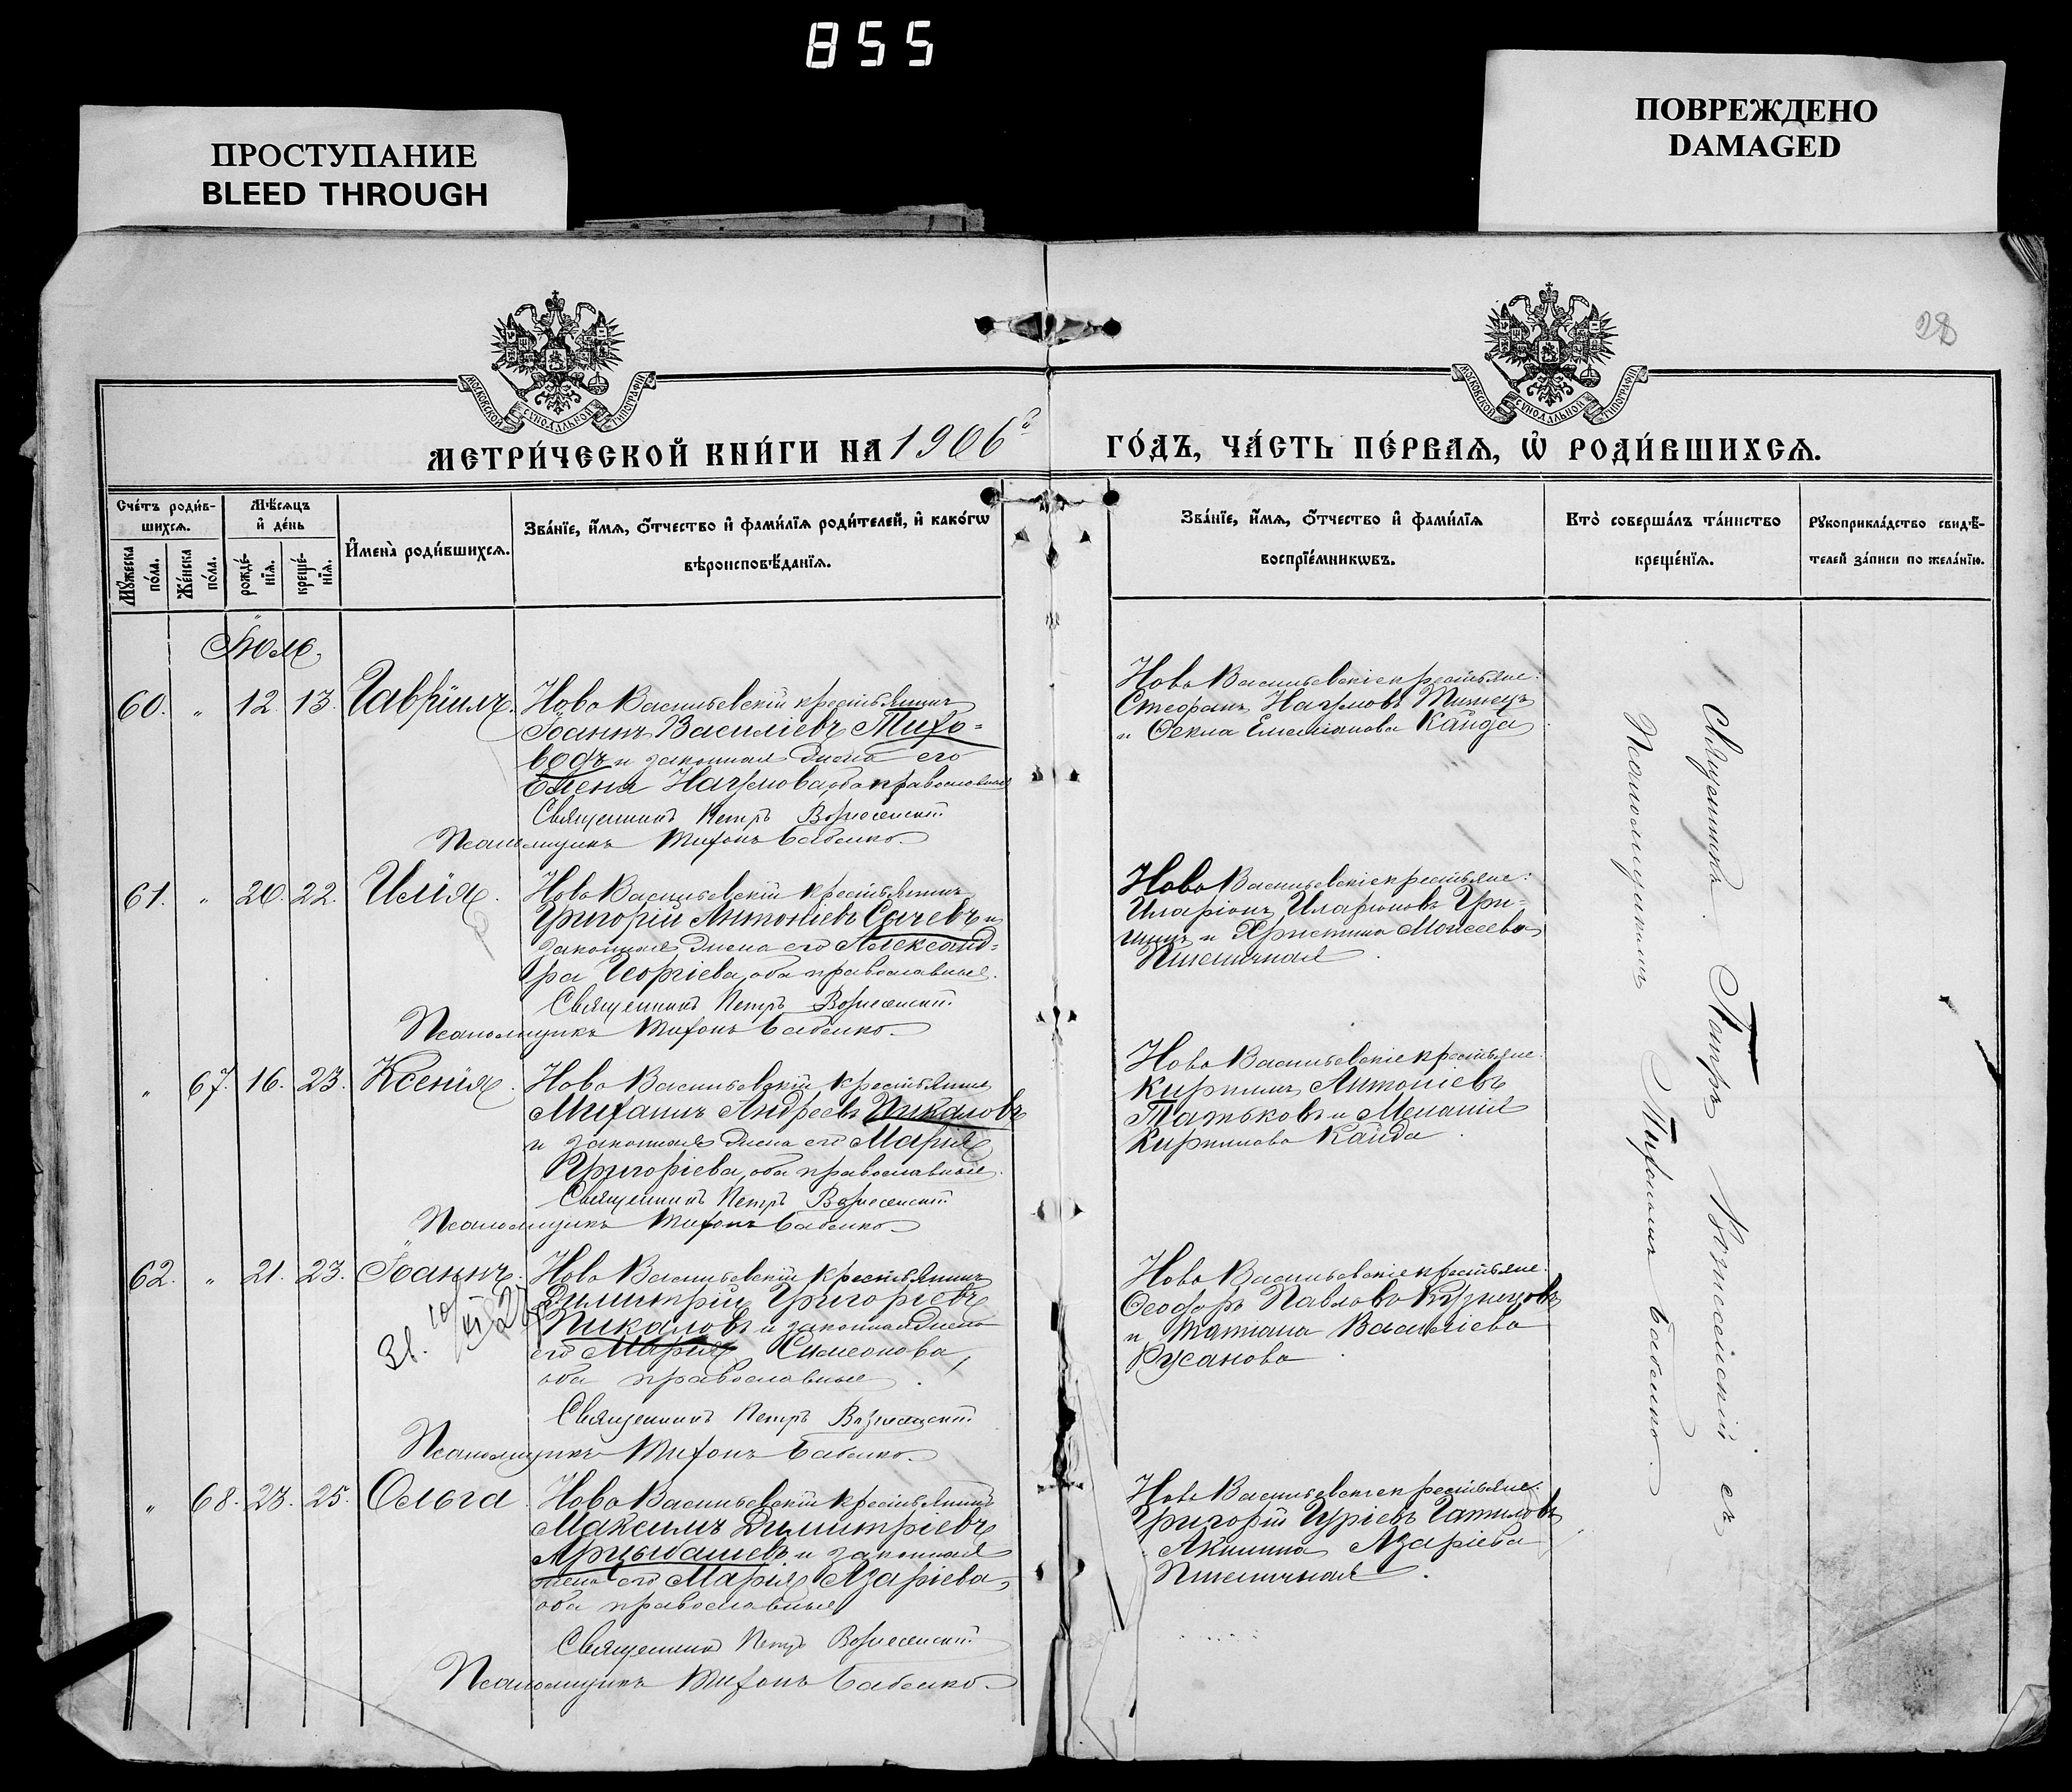 855
ПРОСТУПАНИЕ
BLEED THROUGH
ПОВРЕЖДЕНО
DAMAGED
28
МОСКОВСКОЙ СѴНОДАЛЬНОЙ ТИПОГРАФІИ
МОСКОВСКОЙ СѴНОДАЛЬНОЙ ТИПОГРАФІИ
МЕТРИ́ЧЕСКОЙ КНИ́ГИ НА 1906й
ГО́ДЪ, ЧА́СТЬ ПЕ́РВАѦ, Ѽ РОДИ́ВШИХСѦ.
Сче́тъ роди́в-
шихсѧ.
Мꙋ́жеска по́ла.
Же́нска по́ла.
Мѣ́сѧцъ
и҆ де́нь
рожде́-
нїѧ.
креще́-
нїѧ.
И҆мена̀ роди́вшихсѧ.
Зва́нїе, и҆́мѧ, ѻ҆́тчество и҆ фами́лїѧ роди́телей, и҆ како́гѡ
вѣроисповѣ́данїѧ.
Зва́нїе, и҆́мѧ, ѻ҆́тчество и҆ фами́лїѧ
воспрїе́мникѡвъ.
Кто̀ соверша́лъ та́инство
креще́нїѧ.
Рꙋкоприкла́дство свидѣ́-
телей за́писи по жела́нїю.
Іюль.
60. " 12. 13. Гавріилъ.
Ново Васильевскій крестьянинъ
Іоаннъ Василіевъ Тихо-
водъ и законная жена его
Елена Наумова, оба православные
Священникъ Петръ Вознесенскій
Псаломщикъ Тихонъ Бабенко.
Ново Васильевскіе крестьяне:
Стефанъ Наумовъ
и Ѳекла Емельянова Кайда
61. " 20. 22. Илія.
Ново Васильевскій крестьянинъ
Григорій Антоніевъ Сычевъ и
законная жена его Александ-
ра Георгіева, оба православные.
Священникъ Петръ Вознесенскій
Псаломщикъ Тихонъ Бабенко.
Ново Васильевскіе крестьяне:
Иларіонъ Иларіоновъ Гри-
и Христина Моисеева
Пшеничная.
" 67. 16. 23. Ксенія.
Ново Васильевскій крестьянинъ
Михаилъ Андреевъ Пикаловъ
и законная жена его Марія
Григоріева, оба православные.
Священникъ Петръ Вознесенскій
Псаломщикъ Тихонъ Бабенко.
Ново Васильевскіе крестьяне:
Кириллъ Антоніевъ
Татьковъ и Меланія
Кириллова Кайда.
62. " 21. 23. Іоаннъ.
Ново Васильевскій крестьянинъ
Димитрій Григоріевъ
Пикаловъ и законная жена
его Марія Симеонова,
оба православные.
Священникъ Петръ Вознесенскій
Псаломщикъ Тихонъ Бабенко.
Ново Васильевскіе крестьяне:
Ѳеодоръ Павловъ Кузнецовъ
и Татіана Василіева
Русанова.
" 68. 23. 25. Ольга.
Ново Васильевскій крестьянинъ
Максимъ Димитріевъ
Арцыбашевъ и законная
жена его Марія Азаріева,
оба православные
Священникъ Петръ Вознесенскій
Псаломщикъ Тихонъ Бабенко.
Ново Васильевскіе крестьяне:
Григорій Гуріевъ Гатиловъ
Акилина Азаріева
Пшеничная.
Священникъ Петръ Вознесенскій съ
Псаломщикомъ Тихономъ Бабенко